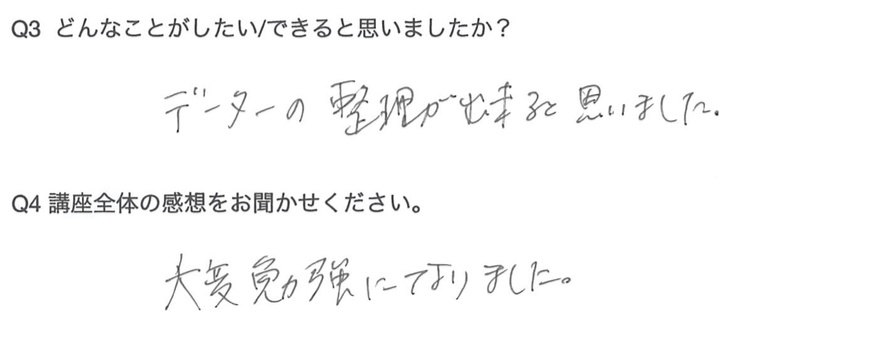 Q3 どんなことがしたい/できると思いましたか？
データーの整理が出来ると思いました.
Q4 講座全体の感想をお聞かせください。
大変勉強になりました。